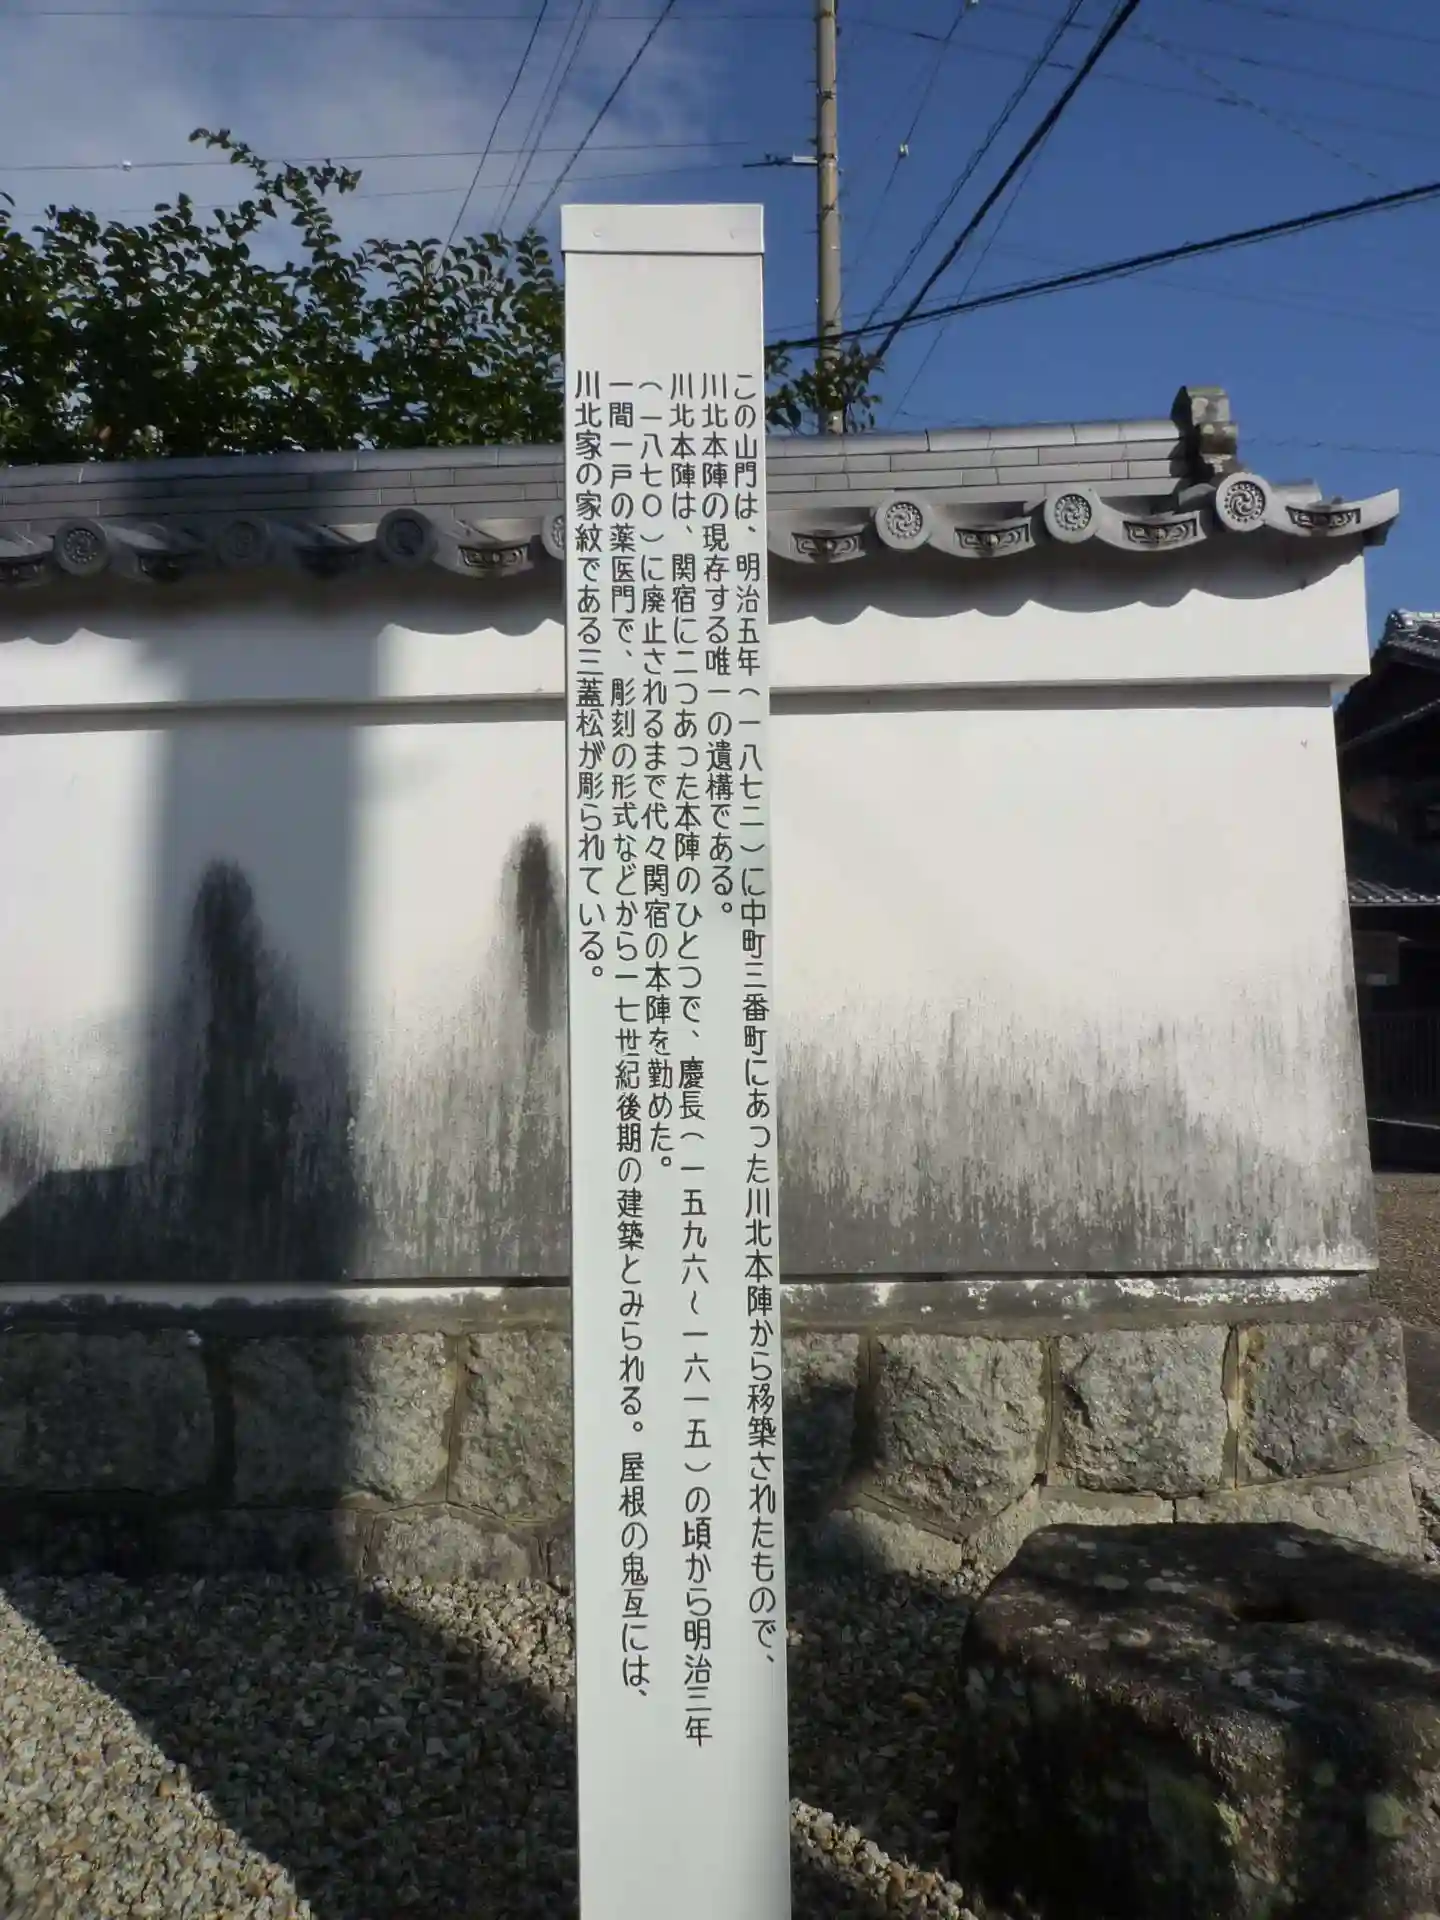 この山門は、明治五年(一八七二)に中町三番町にあった川北本陣から移築されたもので、
川北本陣の現存する唯一の遺構である。
川北本陣は、関宿に二つあった本陣のひとつで、慶長(一五九六～一六一五)の頃から明治三年
(一八七〇)に廃止されるまで代々関宿の本陣を勤めた。
一間一戸の薬医門で、彫刻の形式などから一七世紀後期の建築とみられる。屋根の鬼瓦には、
川北家の家紋である三蓋松が彫られている。